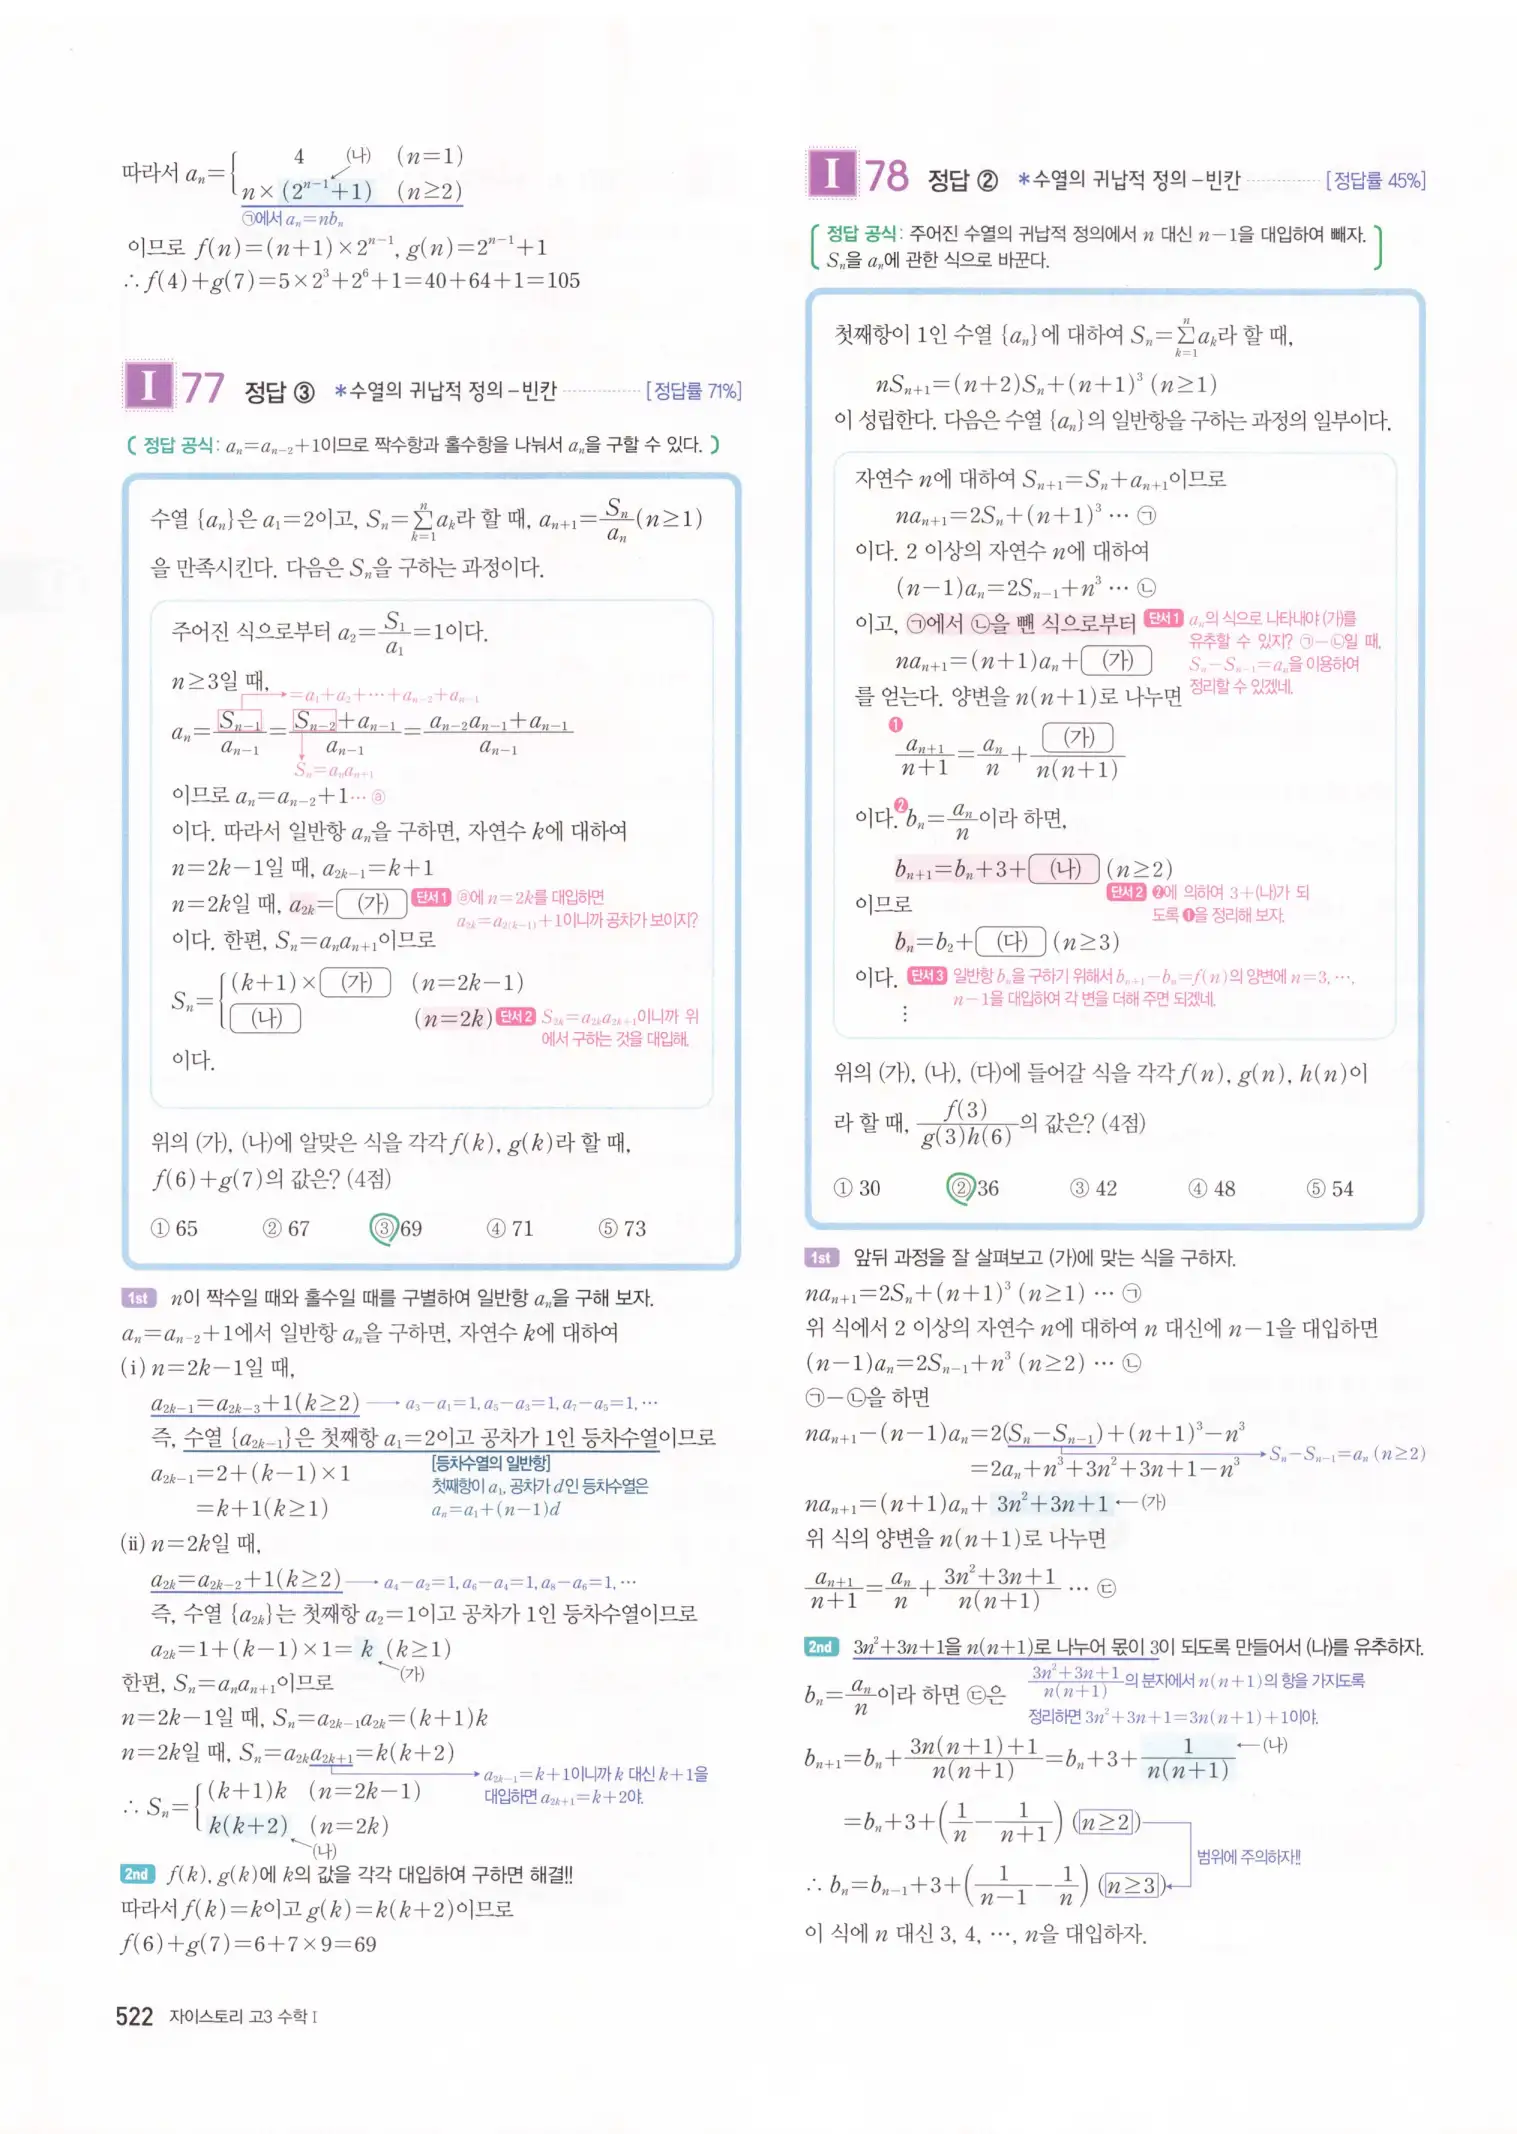 따라서 aₙ={ 4 (나) (n=1)
n×(2ⁿ⁻¹+1) (n≥2)
㉠에서 aₙ=nbₙ
이므로 f(n)=(n+1)×2ⁿ⁻¹, g(n)=2ⁿ⁻¹+1
∴ f(4)+g(7)=5×2³+2⁶+1=40+64+1=105
I 77 정답 ③ *수열의 귀납적 정의-빈칸 [정답률 71%]
( 정답 공식: aₙ=aₙ₋₂+1이므로 짝수항과 홀수항을 나눠서 aₙ을 구할 수 있다. )
수열 {aₙ}은 a₁=2이고, Sₙ=∑(k=1~n) aₖ라 할 때, aₙ₊₁=Sₙ/aₙ (n≥1)
을 만족시킨다. 다음은 Sₙ을 구하는 과정이다.
주어진 식으로부터 a₂=S₁/a₁=1이다.
n≥3일 때, =a₁+a₂+⋯+aₙ₋₂+aₙ₋₁
aₙ=Sₙ₋₁/aₙ₋₁=(Sₙ₋₂+aₙ₋₁)/aₙ₋₁=(aₙ₋₂aₙ₋₁+aₙ₋₁)/aₙ₋₁
Sₙ=aₙaₙ₊₁
이므로 aₙ=aₙ₋₂+1⋯ ⓐ
이다. 따라서 일반항 aₙ을 구하면, 자연수 k에 대하여
n=2k-1일 때, a₂ₖ₋₁=k+1
n=2k일 때, a₂ₖ= (가) 단서1 ⓐ에 n=2k를 대입하면
a₂ₖ=a₂₍ₖ₋₁₎+1이니까 공차가 보이지?
이다. 한편, Sₙ=aₙaₙ₊₁이므로
Sₙ={ (k+1)× (가) (n=2k-1)
(나) (n=2k) 단서2 S₂ₖ=a₂ₖa₂ₖ₊₁이니까 위
에서 구하는 것을 대입해.
이다.
위의 (가), (나)에 알맞은 식을 각각 f(k), g(k)라 할 때,
f(6)+g(7)의 값은? (4점)
① 65 ② 67 ③ 69 ④ 71 ⑤ 73
1st n이 짝수일 때와 홀수일 때를 구별하여 일반항 aₙ을 구해 보자.
aₙ=aₙ₋₂+1에서 일반항 aₙ을 구하면, 자연수 k에 대하여
(ⅰ) n=2k-1일 때,
a₂ₖ₋₁=a₂ₖ₋₃+1(k≥2) → a₃-a₁=1, a₅-a₃=1, a₇-a₅=1, ⋯
즉, 수열 {a₂ₖ₋₁}은 첫째항 a₁=2이고 공차가 1인 등차수열이므로
a₂ₖ₋₁=2+(k-1)×1 [등차수열의 일반항]
첫째항이 a₁, 공차가 d인 등차수열은
=k+1(k≥1) aₙ=a₁+(n-1)d
(ⅱ) n=2k일 때,
a₂ₖ=a₂ₖ₋₂+1(k≥2) → a₄-a₂=1, a₆-a₄=1, a₈-a₆=1, ⋯
즉, 수열 {a₂ₖ}는 첫째항 a₂=1이고 공차가 1인 등차수열이므로
a₂ₖ=1+(k-1)×1= k (k≥1)
(가)
한편, Sₙ=aₙaₙ₊₁이므로
n=2k-1일 때, Sₙ=a₂ₖ₋₁a₂ₖ=(k+1)k
n=2k일 때, Sₙ=a₂ₖa₂ₖ₊₁=k(k+2)
→ a₂ₖ₋₁=k+1이니까 k 대신 k+1을
대입하면 a₂ₖ₊₁=k+2야.
∴ Sₙ={ (k+1)k (n=2k-1)
k(k+2) (n=2k)
(나)
2nd f(k), g(k)에 k의 값을 각각 대입하여 구하면 해결!!
따라서 f(k)=k이고 g(k)=k(k+2)이므로
f(6)+g(7)=6+7×9=69
522 자이스토리 고3 수학 Ⅰ
I 78 정답 ② *수열의 귀납적 정의-빈칸 [정답률 45%]
[ 정답 공식: 주어진 수열의 귀납적 정의에서 n 대신 n-1을 대입하여 빼자.
Sₙ을 aₙ에 관한 식으로 바꾼다. ]
첫째항이 1인 수열 {aₙ}에 대하여 Sₙ=∑(k=1~n) aₖ라 할 때,
nSₙ₊₁=(n+2)Sₙ+(n+1)³ (n≥1)
이 성립한다. 다음은 수열 {aₙ}의 일반항을 구하는 과정의 일부이다.
자연수 n에 대하여 Sₙ₊₁=Sₙ+aₙ₊₁이므로
naₙ₊₁=2Sₙ+(n+1)³ ⋯ ㉠
이다. 2 이상의 자연수 n에 대하여
(n-1)aₙ=2Sₙ₋₁+n³ ⋯ ㉡
이고, ㉠에서 ㉡을 뺀 식으로부터 단서1 aₙ의 식으로 나타내야 (가)를
유추할 수 있지? ㉠-㉡일 때,
naₙ₊₁=(n+1)aₙ+ (가) Sₙ-Sₙ₋₁=aₙ을 이용하여
를 얻는다. 양변을 n(n+1)로 나누면 정리할 수 있겠네.
❶ aₙ₊₁/(n+1)=aₙ/n+ (가) /n(n+1)
이다. ❷bₙ=aₙ/n이라 하면,
bₙ₊₁=bₙ+3+ (나) (n≥2)
단서2 ❷에 의하여 3+(나)가 되
이므로 도록 ❶을 정리해 보자.
bₙ=b₂+ (다) (n≥3)
이다. 단서3 일반항 bₙ을 구하기 위해서 bₙ₊₁-bₙ=f(n)의 양변에 n=3, ⋯,
n-1을 대입하여 각 변을 더해 주면 되겠네.
⋮
위의 (가), (나), (다)에 들어갈 식을 각각 f(n), g(n), h(n)이
라 할 때, f(3)/g(3)h(6)의 값은? (4점)
① 30 ② 36 ③ 42 ④ 48 ⑤ 54
1st 앞뒤 과정을 잘 살펴보고 (가)에 맞는 식을 구하자.
naₙ₊₁=2Sₙ+(n+1)³ (n≥1) ⋯ ㉠
위 식에서 2 이상의 자연수 n에 대하여 n 대신에 n-1을 대입하면
(n-1)aₙ=2Sₙ₋₁+n³ (n≥2) ⋯ ㉡
㉠-㉡을 하면
naₙ₊₁-(n-1)aₙ=2(Sₙ-Sₙ₋₁)+(n+1)³-n³
→ Sₙ-Sₙ₋₁=aₙ (n≥2)
=2aₙ+n³+3n²+3n+1-n³
naₙ₊₁=(n+1)aₙ+ 3n²+3n+1 ←(가)
위 식의 양변을 n(n+1)로 나누면
aₙ₊₁/(n+1)=aₙ/n+(3n²+3n+1)/n(n+1) ⋯ ㉢
2nd 3n²+3n+1을 n(n+1)로 나누어 몫이 3이 되도록 만들어서 (나)를 유추하자.
bₙ=aₙ/n이라 하면 ㉢은 (3n²+3n+1)/n(n+1)의 분자에서 n(n+1)의 항을 가지도록
정리하면 3n²+3n+1=3n(n+1)+1이야.
bₙ₊₁=bₙ+(3n(n+1)+1)/n(n+1)=bₙ+3+ 1/n(n+1) ←(나)
=bₙ+3+(1/n-1/(n+1)) (n≥2)
범위에 주의하자!!
∴ bₙ=bₙ₋₁+3+(1/(n-1)-1/n) (n≥3)
이 식에 n 대신 3, 4, ⋯, n을 대입하자.